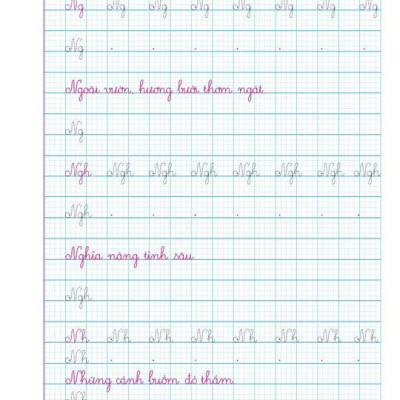 Ng Ng Ng Ng Ng Ng Ng Ng
Ng
Ngoài vườn, hương bưởi thơm ngát.
Ng
Ngh Ngh Ngh Ngh Ngh Ngh Ngh Ngh
Ngh
Nghĩa nặng tình sâu.
Ngh
Nh Nh Nh Nh Nh Nh Nh Nh
Nh
Những cánh buồm đỏ thắm.
Nh